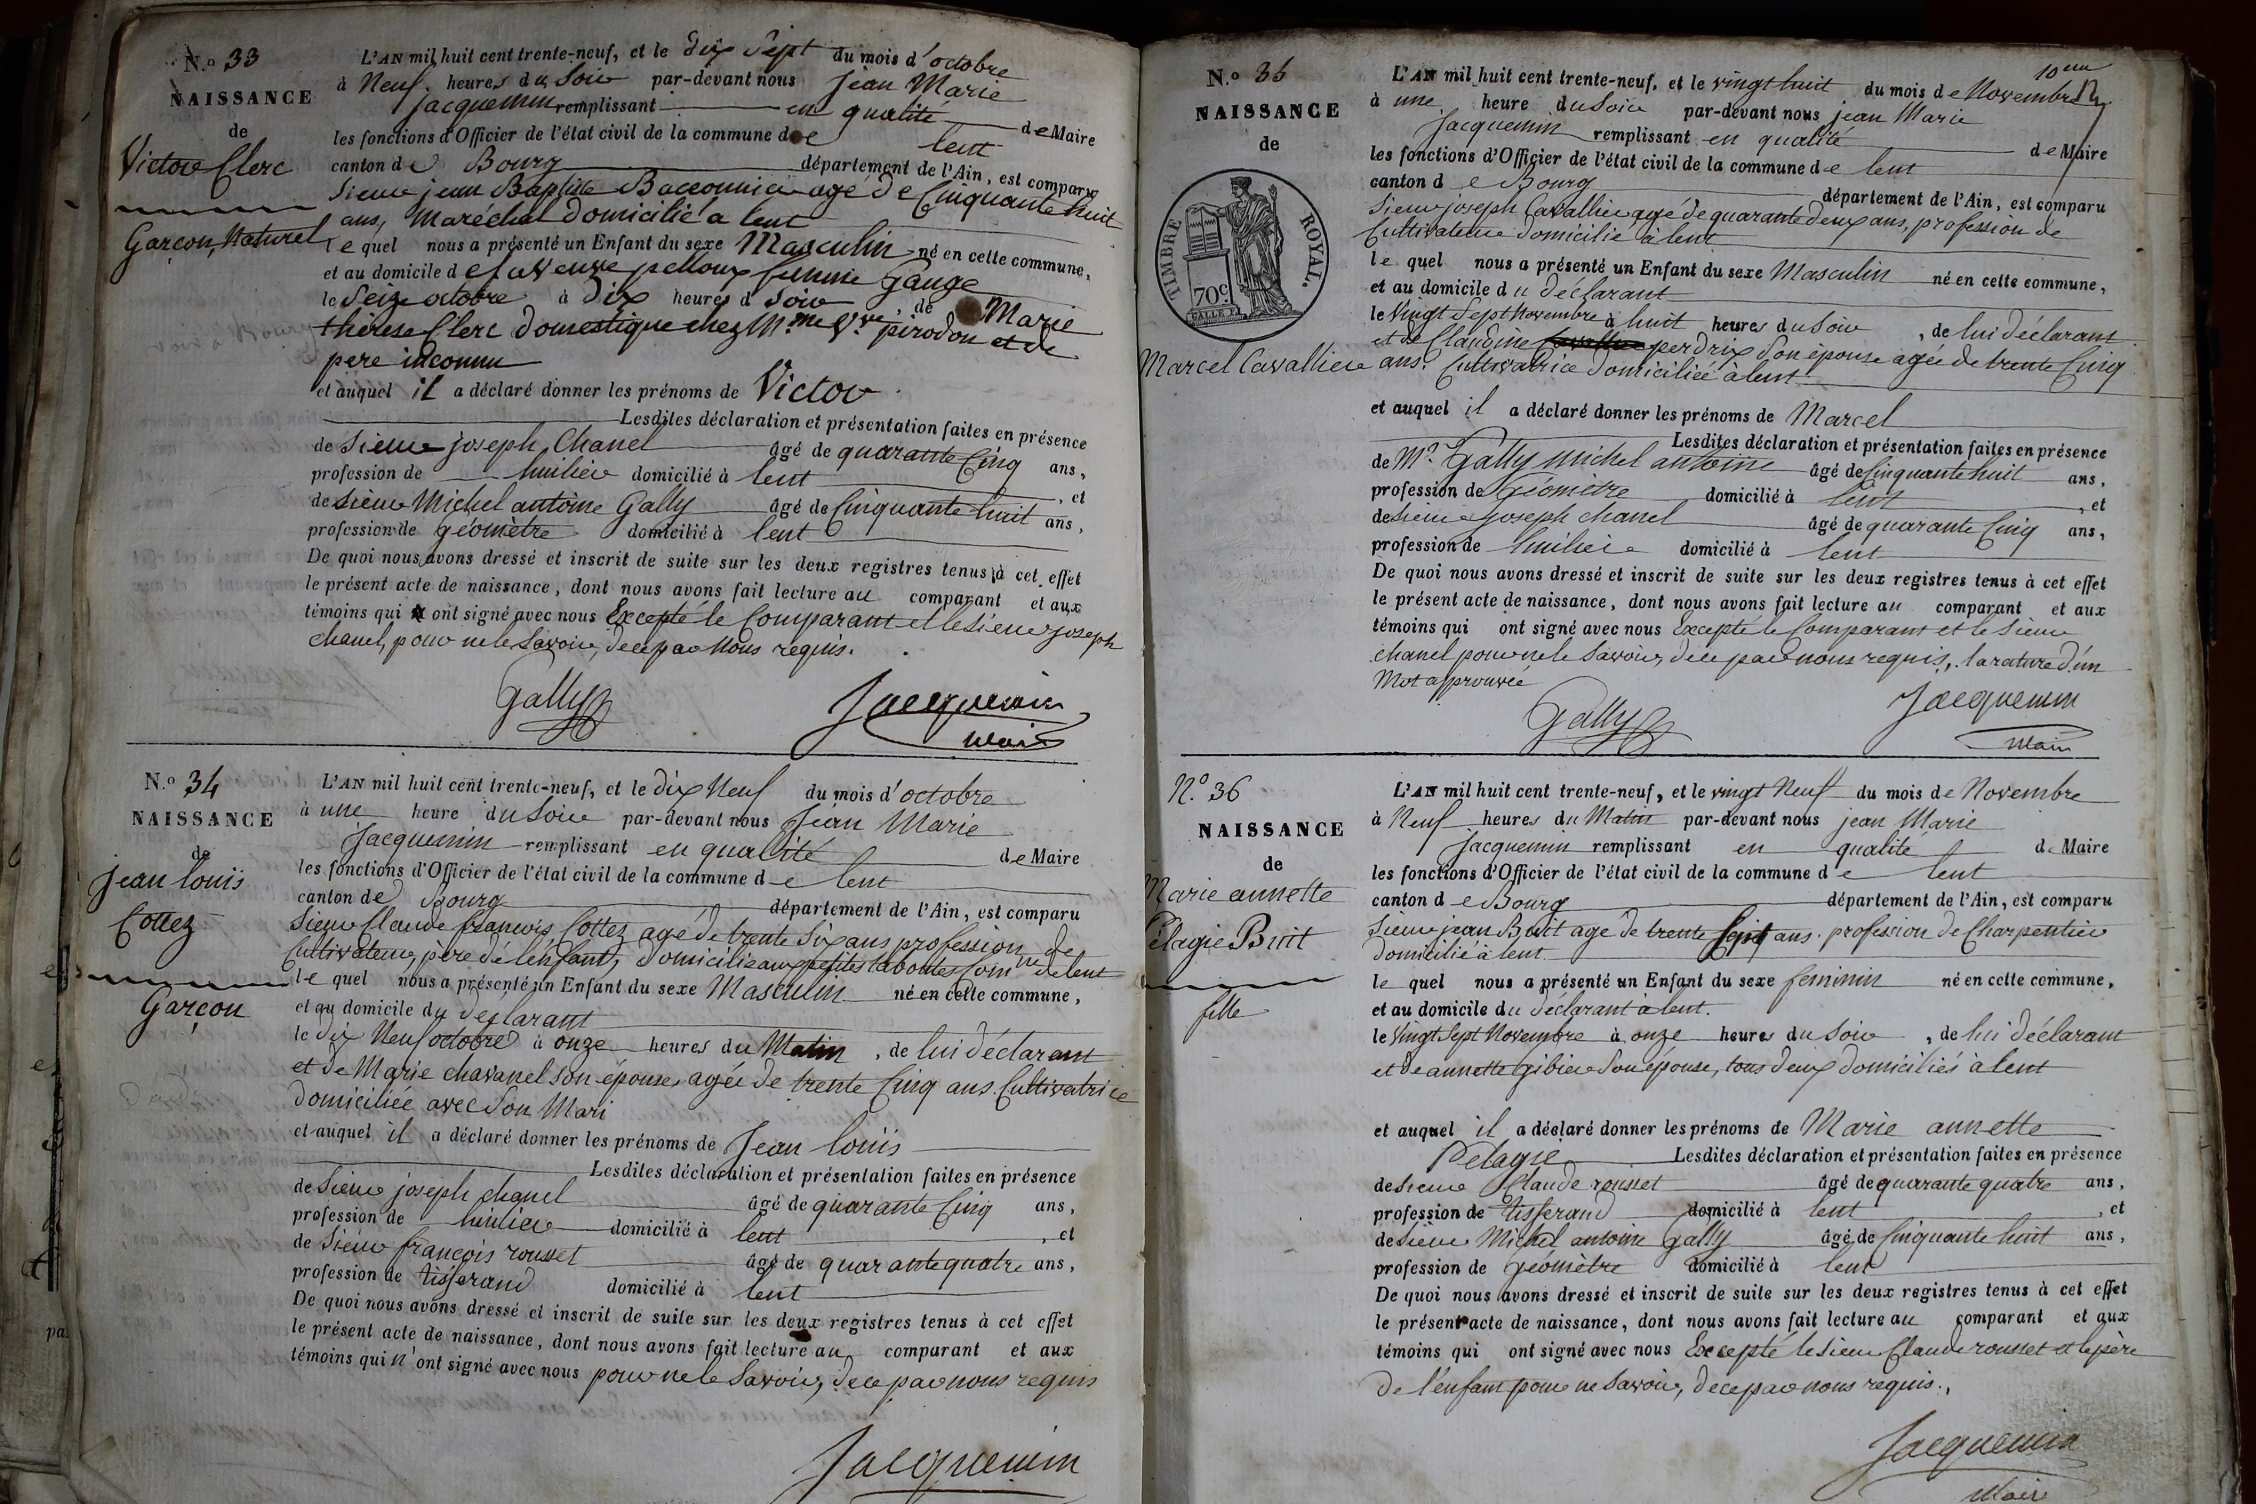 N.º 33
NAISSANCE
de
Victor Clerc
Garçon, Naturel
L'AN mil huit cent trente-neuf, et le dix Sept du mois d'octobre
à Neuf heures du Soir par-devant nous jean Marie
Jacquemin remplissant en qualité de Maire
les fonctions d'Officier de l'état civil de la commune de lent
canton de Bourg département de l'Ain, est comparu
Sieur jean Baptiste agé de Cinquante huit
ans, Maréchal domicilié à lent
le quel nous a présenté un Enfant du sexe Masculin né en cette commune,
et au domicile de la Veuve femme Gauge
le Seize octobre à Dix heures d Soir, de Marie
thérese Clerc Domestique chez Mme Vve pirodon et de
pere inconnu
et auquel il a déclaré donner les prénoms de Victor
Lesdites déclaration et présentation faites en présence
de Sieur joseph Chanel âgé de quarante Cinq ans,
profession de huilier domicilié à lent, et
de Sieur Michel antoine Gally âgé de Cinquante huit ans,
profession de géomètre domicilié à lent
De quoi nous avons dressé et inscrit de suite sur les deux registres tenus à cet effet
le présent acte de naissance, dont nous avons fait lecture au comparant et aux
témoins qui ont signé avec nous Excepté le Comparant et le Sieur joseph
chanel, pour ne le Savoir, de ce par Nous requis.
Gally
Jacquemin
Maire
N.º 34
NAISSANCE
de
jean louis
Cottez
Garçon
L'AN mil huit cent trente-neuf, et le dix Neuf du mois d'octobre
à une heure du Soir par-devant nous Jean Marie
Jacquemin remplissant en qualité de Maire
les fonctions d'Officier de l'état civil de la commune de lent
canton de Bourg département de l'Ain, est comparu
Sieur Claude françois Cottez agé de trente Six ans profession de
Cultivateur, père de l'énfant, domicilié aux petites laboutes Comne de lent
le quel nous a présenté un Enfant du sexe Masculin né en cette commune,
et au domicile du déclarant
le dix Neuf octobre à onze heures du Matin, de lui déclarant
et de Marie chavanel Son épouse, agée de trente Cinq ans. Cultivatrice
domiciliée avec Son Mari
et auquel il a déclaré donner les prénoms de Jean louis
Lesdites déclaration et présentation faites en présence
de Sieur joseph chanel âgé de quarante Cinq ans,
profession de huilier domicilié à lent, et
de Sieur françois rousset âgé de quarante quatre ans,
profession de tisserand domicilié à lent
De quoi nous avons dressé et inscrit de suite sur les deux registres tenus à cet effet
le présent acte de naissance, dont nous avons fait lecture au comparant et aux
témoins qui n'ont signé avec nous pour ne le Savoir, de ce par nous requis
Jacquemin
N.º 35
NAISSANCE
de
TIMBRE ROYAL.
70c
Marcel Cavallier
L'AN mil huit cent trente-neuf, et le vingt huit du mois de Novembre
à une heure du Soir par-devant nous jean Marie
Jacquemin remplissant en qualité de Maire
les fonctions d'Officier de l'état civil de la commune de lent
canton de Bourg département de l'Ain, est comparu
Sieur joseph Cavallier agé de quarante deux ans, profession de
Cultivateur domicilié à lent
le quel nous a présenté un Enfant du sexe Masculin né en cette commune,
et au domicile du déclarant
le Vingt Sept Novembre à huit heures du Soir, de lui déclarant
et de Claudine perdrix Son épouse agée de trente Cinq
ans. Cultivatrice Domiciliée à lent
et auquel il a déclaré donner les prénoms de Marcel
Lesdites déclaration et présentation faites en présence
de Mr. Gally michel antoine âgé de Cinquante huit ans,
profession de Géomètre domicilié à lent, et
de Sieur joseph chanel âgé de quarante Cinq ans,
profession de huilier domicilié à lent
De quoi nous avons dressé et inscrit de suite sur les deux registres tenus à cet effet
le présent acte de naissance, dont nous avons fait lecture au comparant et aux
témoins qui ont signé avec nous Excepté le Comparant et le Sieur
chanel pour ne le Savoir, de ce par nous requis, la rature d'un
Mot approuvée
Gally
Jacquemin
Maire
N.º 36
NAISSANCE
de
Marie annette
Pélagie Buit
fille
L'AN mil huit cent trente-neuf, et le vingt Neuf du mois de Novembre
à Neuf heures du Matin par-devant nous jean Marie
Jacquemin remplissant en qualité de Maire
les fonctions d'Officier de l'état civil de la commune de lent
canton de Bourg département de l'Ain, est comparu
Sieur jean Buit agé de trente Sept ans. profession de Charpentier
Domicilié à lent.
le quel nous a présenté un Enfant du sexe feminin né en cette commune,
et au domicile du déclarant à lent.
le Vingt Sept Novembre à onze heures du Soir, de lui déclarant
et de annette gibier Son épouse, tous deux domiciliés à lent
et auquel il a déclaré donner les prénoms de Marie annette
Pélagie Lesdites déclaration et présentation faites en présence
de Sieur Claude rousset âgé de quarante quatre ans,
profession de tisserand domicilié à lent, et
de Sieur Michel antoine Gally âgé de Cinquante huit ans,
profession de Géomètre domicilié à lent
De quoi nous avons dressé et inscrit de suite sur les deux registres tenus à cet effet
le présent acte de naissance, dont nous avons fait lecture au comparant et aux
témoins qui ont signé avec nous Excepté le Sieur Claude rousset et le père
de l'énfant pour ne Savoir, de ce par nous requis.
Jacquemin
Maire